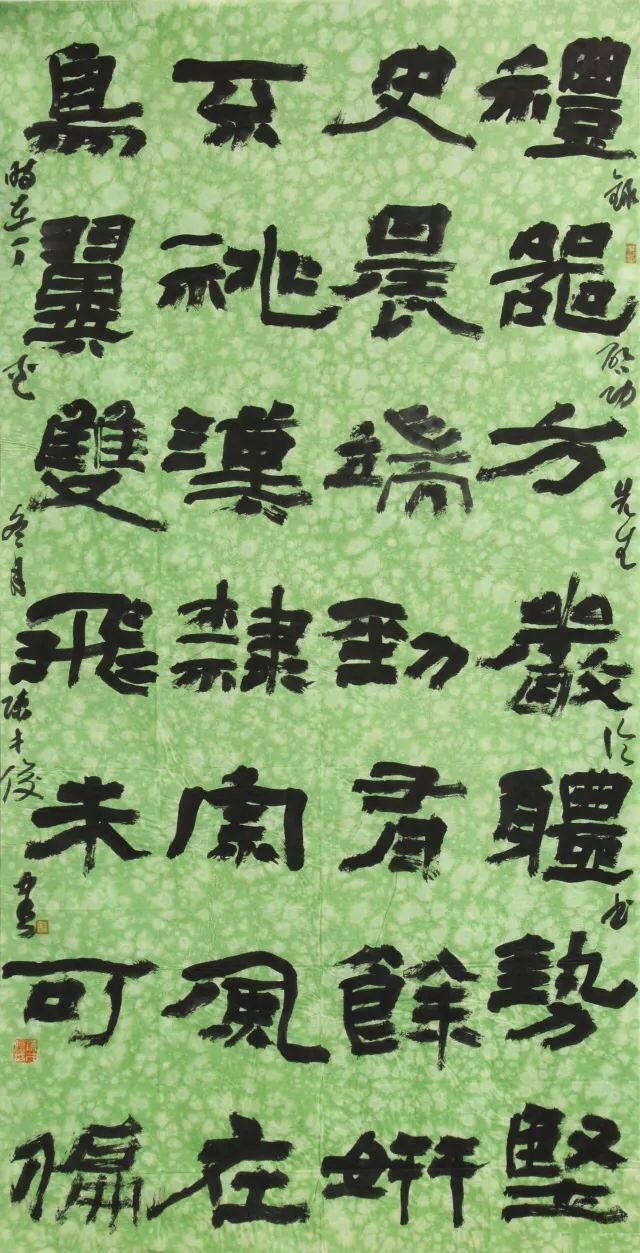 禮器方嚴體勢堅
史晨端勁有餘妍
不祧漢隸宗風在
鳥翼雙飛未可偏
錄啟功先生論書
時在丁冬月陳才俊書